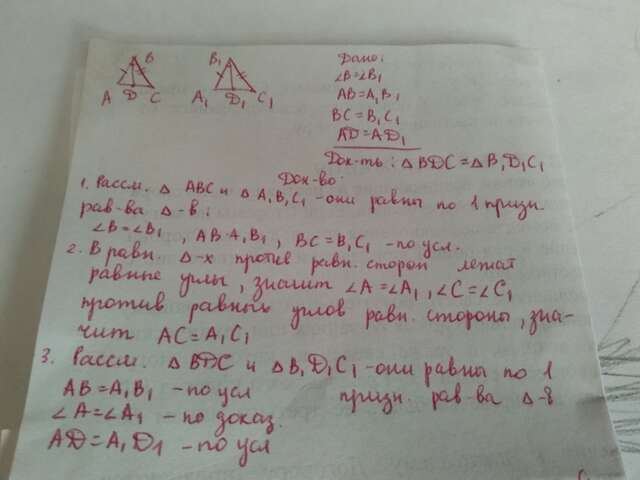 B B₁
A D C A₁ D₁ C₁
Дано:
∠B=∠B₁
AB=A₁B₁
BC=B₁C₁
AD=AD₁
Док-ть: △BDC=△B₁D₁C₁
Док-во
1. Рассм. △ ABC и △ A₁B₁C₁ -они равны по 1 призн.
рав-ва △-в:
∠B=∠B₁, AB=A₁B₁, BC=B₁C₁ -по усл.
2. В равн. △-х против равн. сторон лежат
равные углы, значит ∠A=∠A₁, ∠C=∠C₁
против равных углов равн. стороны, зна-
чит AC=A₁C₁
3. Рассм. △ BDC и △ B₁D₁C₁ -они равны по 1
призн. рав-ва △-в
AB=A₁B₁ -по усл
∠A=∠A₁ -по доказ.
AD=A₁D₁ -по усл